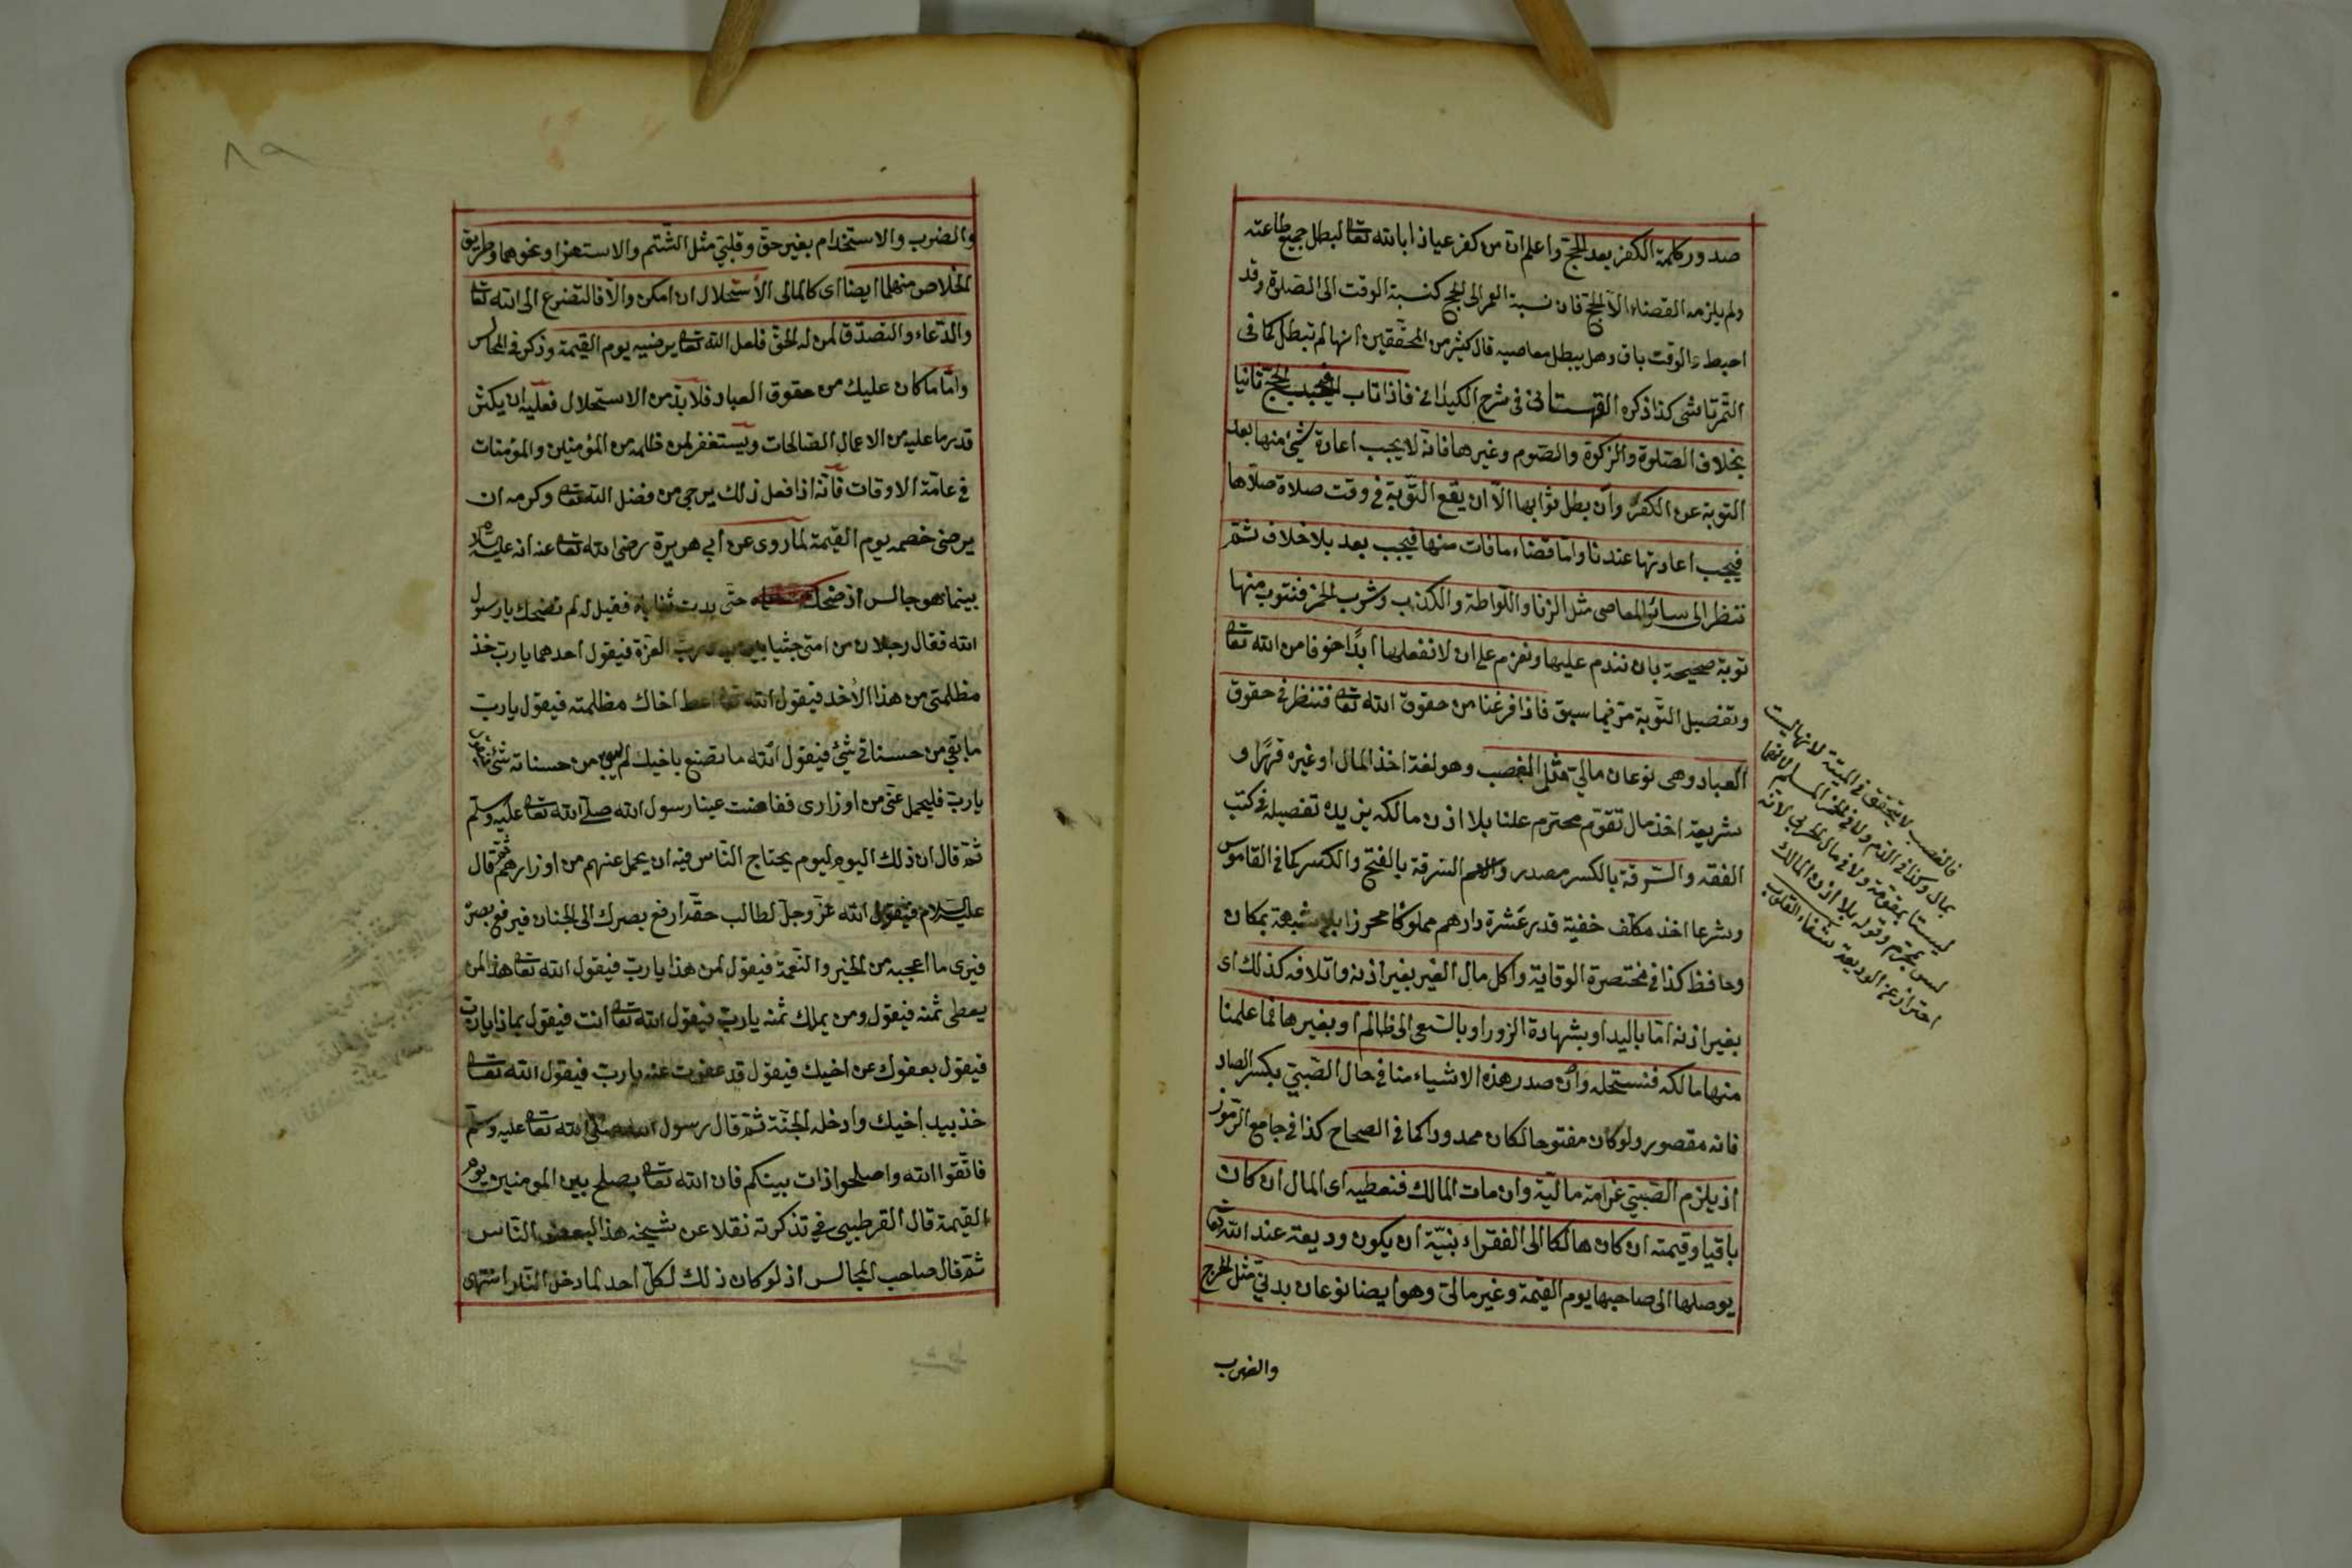 صدور كلمة الكفر بعد الحج واعلم ان من كفر عياذا بالله تعا لبطل جميع طاعته
ولم يلزمه القضاء الا الحج فان نسبة العمر الى الحج كنسبة الوقت الى الصلوة وقد
احبط والوقت باق وهل يبطل معاصيه قال كثير من المحققين انها لم تبطل كما في
التمرتاشى كذا ذكره القهستانى في شرح الكيدانى فاذا تاب فيجب الحج ثانيا
بخلاف الصلوة والزكوة والصوم وغيرها فانه لا يجب اعادة شئ منها بعد
التوبة عن الكفر وان بطل ثوابها الا ان يقع التوبة في وقت صلاة صلاها
فيجب اعادتها عندنا واما قضاء ما فات منها فيجب بعد بلا خلاف ثم
ننظر الى سائر المعاصى مثل الزنا واللواطة والكذب وشرب الخمر فنتوب منها
توبة صحيحة بان نندم عليها ونعزم على ان لا نفعلها ابدًا خوفا من الله تعا
وتفصيل التوبة مر فيما سبق فاذا فرغنا من حقوق الله تعا فننظر في حقوق
العباد وهى نوعان مالى مثل الغصب وهو لغة اخذ المال او غيره قهرًا و
شريعة اخذ مال تقوم محترم علنا بلا اذن مالكه يزيده تفصيله في كتب
الفقه والسرقة بالكسر مصدر والاسم السرقة بالفتح والكسر كما في القاموس
وشرعا اخذ مكلف خفية قدر عشرة دارهم مملوكا محرزا بلا شبهة بمكان
وحافظ كذا في مختصرة الوقاية واكل مال الغير بغير اذنه واتلافه كذلك اى
بغير اذنه اما باليد او بشهادة الزور او بالسعى الى ظالم او بغيرها فما علمنا
منها مالكه فنستحله وان صدر هذه الاشياء منا في حال الصبى بكسر الصاد
فانه مقصور ولو كان مفتوحا لكان ممدودا كما في الصحاح كذا في جامع الرموز
اذ يلزم الصبى غرامة مالية وان مات المالك فنعطيه اى المال ان كان
باقيا وقيمته ان كان هالكا الى الفقراء بنية ان يكون وديعة عند الله تعا
يوصلها الى صاحبها يوم القيمة وغير مالى وهو ايضا نوعان بدنى مثل الجرح
والضرب
فالغصب لا يتحقق في الميتة لانها ليست
بمال وكذا في الدم ولا في خمر المسلم لانها
ليستا بمتقومة ولا في مال الحربى لانه
ليس بمحترم وقوله بلا اذن المالك
احتراز عن الوديعة شفاء القلوب
٨٩
والضرب والاستخدام بغير حق وقلبى مثل الشتم والاستهزا ونحوهما وطريق
الخلاص منهما ايضا اى كالمالى الاستحلال ان امكن والا فالتضرع الى الله تعا
والدعاء والتصدق لمن له الحق فلعل الله تعا يرضيه يوم القيمة وذكر في المجالس
واما ما كان عليك من حقوق العباد فلا بد من الاستحلال فعليه ان يكثر
قدر ما عليه من الاعمال الصالحات ويستغفر لمن ظلمه من المؤمنين والمؤمنات
في عامة الاوقات فانه اذا فعل ذلك يرجى من فضل الله تعا وكرمه ان
يرضى خصمه يوم القيمة لما روى عن ابى هويرة رضى الله تعا عنه انه عليه
بينما هو جالس اذ ضحك حتى بدت ثناياه فقيل له لم تضحك يا رسول
الله فقال رجلان من امتى جثيا بين يدى رب العزة فيقول احدهما يا رب خذ
مظلمتى من هذا الأخذ فيقول الله تعا اعط اخاك مظلمته فيقول يا رب
ما بقى من حسناتى شئ فيقول الله ما تصنع باخيك لم يبق من حسناته شئ
يا رب فليحمل عنى من اوزارى ففاضت عينا رسول الله صلى الله تعا عليه وسلم
ثم قال ان ذلك اليوم ليوم يحتاج الناس فيه ان يحمل عنهم من اوزارهم ثم قال
عليه السلام فيقول الله عز وجل لطالب حقه ارفع بصرك الى الجنان فيرفع بصره
فيرى ما اعجبه من الخير والنعمة فيقول لمن هذا يا رب فيقول الله تعا هذا لمن
يعطى ثمنه فيقول ومن يملك ثمنه يا رب فيقول الله تعا انت فيقول بماذا يا رب
فيقول بعفوك عن اخيك فيقول قد عفوت عنه يا رب فيقول الله تعا
خذ بيد اخيك وادخله الجنة ثم قال رسول الله صلى الله تعا عليه وسلم
فاتقوا الله واصلحوا ذات بينكم فان الله تعا يصلح بين المومنين يوم
القيمة قال القرطبى في تذكرته نقلا عن شيخه هذا لبعض الناس
ثم قال صاحب المجالس اذ لو كان ذلك لكل احد لما دخل النار انتهى